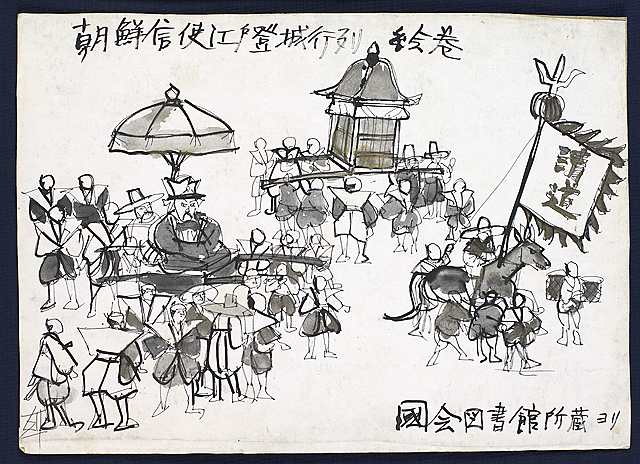 朝鮮信使江戸登城行列 絵巻
清道
國会図書館所蔵ヨリ